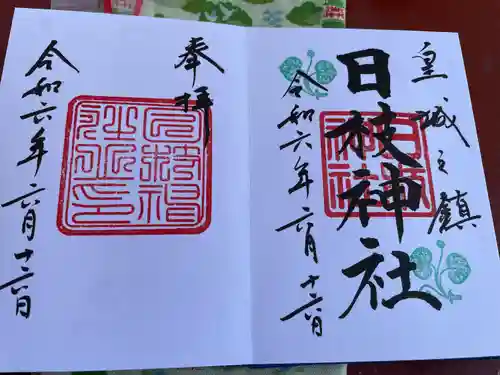 皇城之鎮
日枝神社
令和六年六月十六日
奉拝
令和六年六月十六日